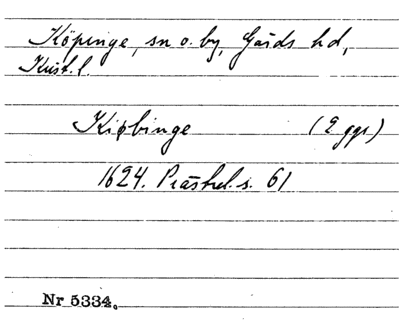 Köpinge, sn o. by, Gärds hd,
Krist. l.
Kiøbinge (2 ggr)
1624. Prästrel. s. 61
Nr 5334.